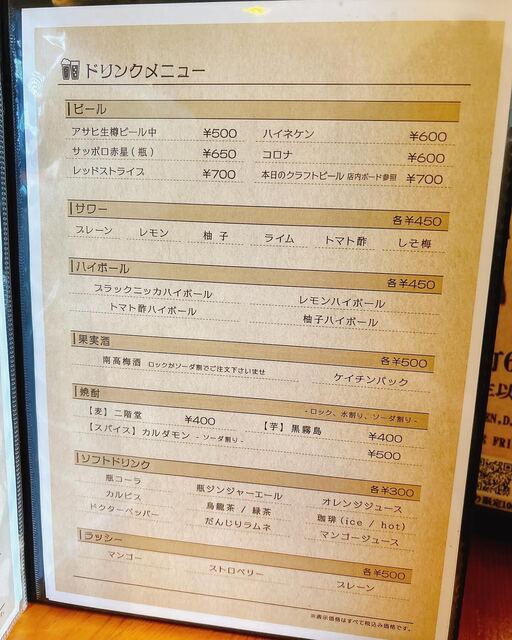 ドリンクメニュー
ビール
アサヒ生樽ビール中 ¥500 ハイネケン ¥600
サッポロ赤星(瓶) ¥650 コロナ ¥600
レッドストライプ ¥700 本日のクラフトビール 店内ボード参照 ¥700
サワー 各¥450
プレーン レモン 柚子 ライム トマト酢 しそ梅
ハイボール 各¥450
ブラックニッカハイボール レモンハイボール
トマト酢ハイボール 柚子ハイボール
果実酒 各¥500
南高梅酒 ロックかソーダ割でご注文下さいませ ケイチンパック
焼酎 -ロック、水割り、ソーダ割り-
【麦】二階堂 ¥400 【芋】黒霧島 ¥400
【スパイス】カルダモン -ソーダ割り- ¥500
ソフトドリンク 各¥300
瓶コーラ 瓶ジンジャーエール オレンジジュース
カルピス 烏龍茶 / 緑茶 珈琲(ice / hot)
ドクターペッパー だんじりラムネ マンゴージュース
ラッシー 各¥500
マンゴー ストロベリー プレーン
※表示価格はすべて税込み価格です。